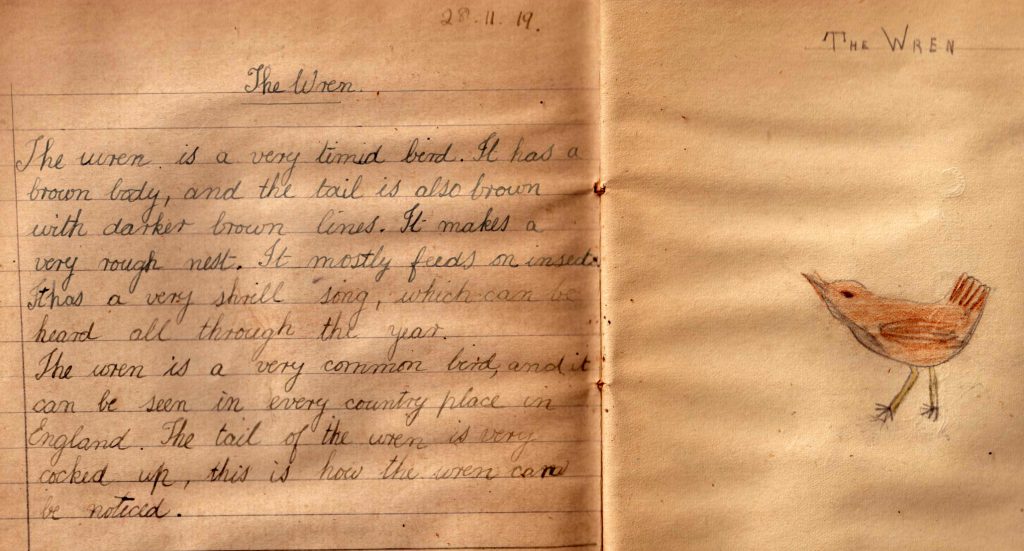 28.11.19.
The Wren.
The wren is a very timid bird. It has a
brown body, and the tail is also brown
with darker brown lines. It makes a
very rough nest. It mostly feeds on insect.
It has a very shrill song, which can be
heard all through the year.
The wren is a very common bird, and it
can be seen in every country place in
England. The tail of the wren is very
cocked up, this is how the wren can
be noticed.
THE WREN